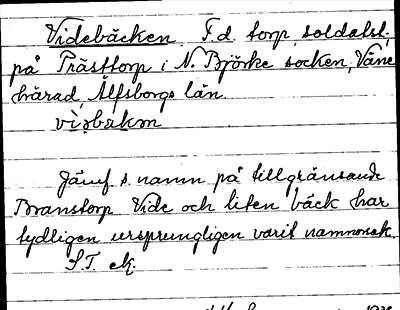 Videbäcken F.d. torp, soldatst.,
på Prästtorp i N. Björke socken, Väne
härad, Älfsborgs län.
vìdbækən
Jämf s. namn på tillgränsande
Branstorp. Vide och liten bäck har
tydligen ursprungligen varit namnorsak.
S.T. ek.